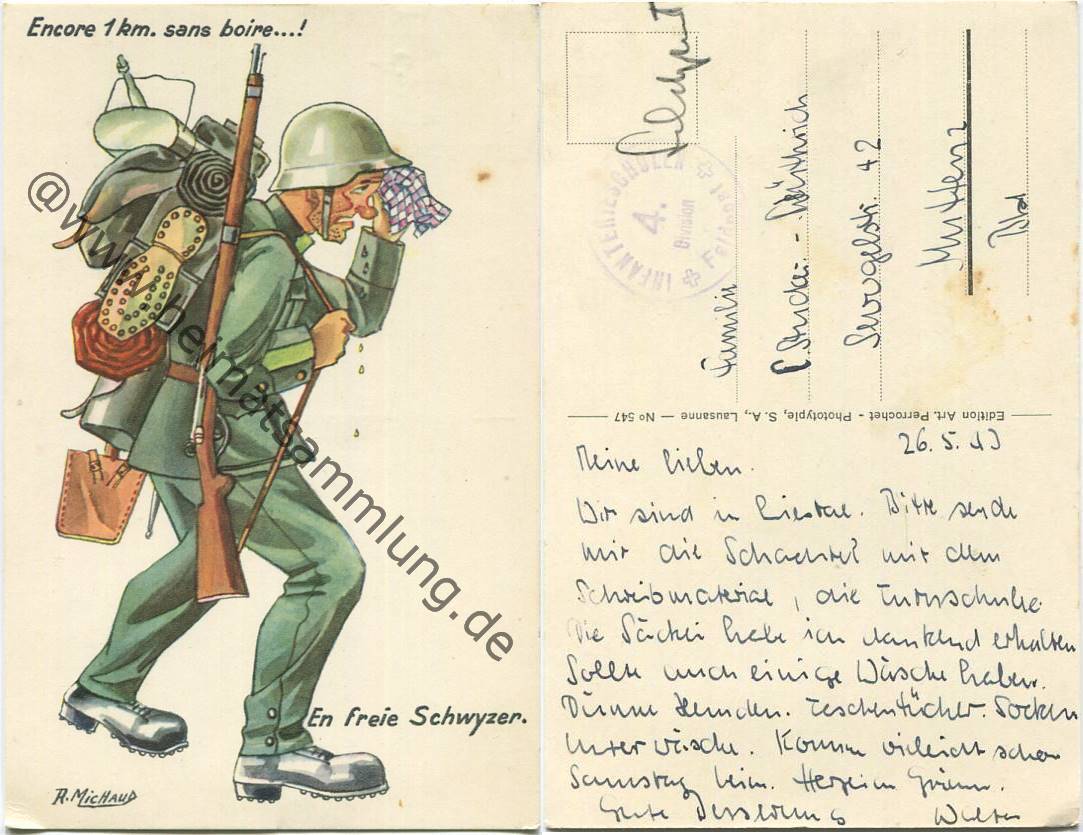 Encore 1 km. sans boire...!
En freie Schwyzer.
R. Michaud
@www.heimatsammlung.de
Feldpost
INFANTERIESCHULEN
4.
Division
Feldpost
Familie
Sevogelstr 42
Muttenz
Edition Art. Perrochet - Phototypie, S. A., Lausanne — No 547
26. 5. 43
Meine Lieben.
Wir sind in Liestal. Bitte sende
mir die Schachtel mit dem
Schreibmaterial, die Turnschuhe.
Die Säckli habe ich dankend erhalten
Sollte auch einige Wäsche haben.
Dünne Hemden. Taschentücher. Socken
Unterwäsche. Komme vieleicht schon
Samstag heim. Herzlein Grüsse.
Gute
Walter